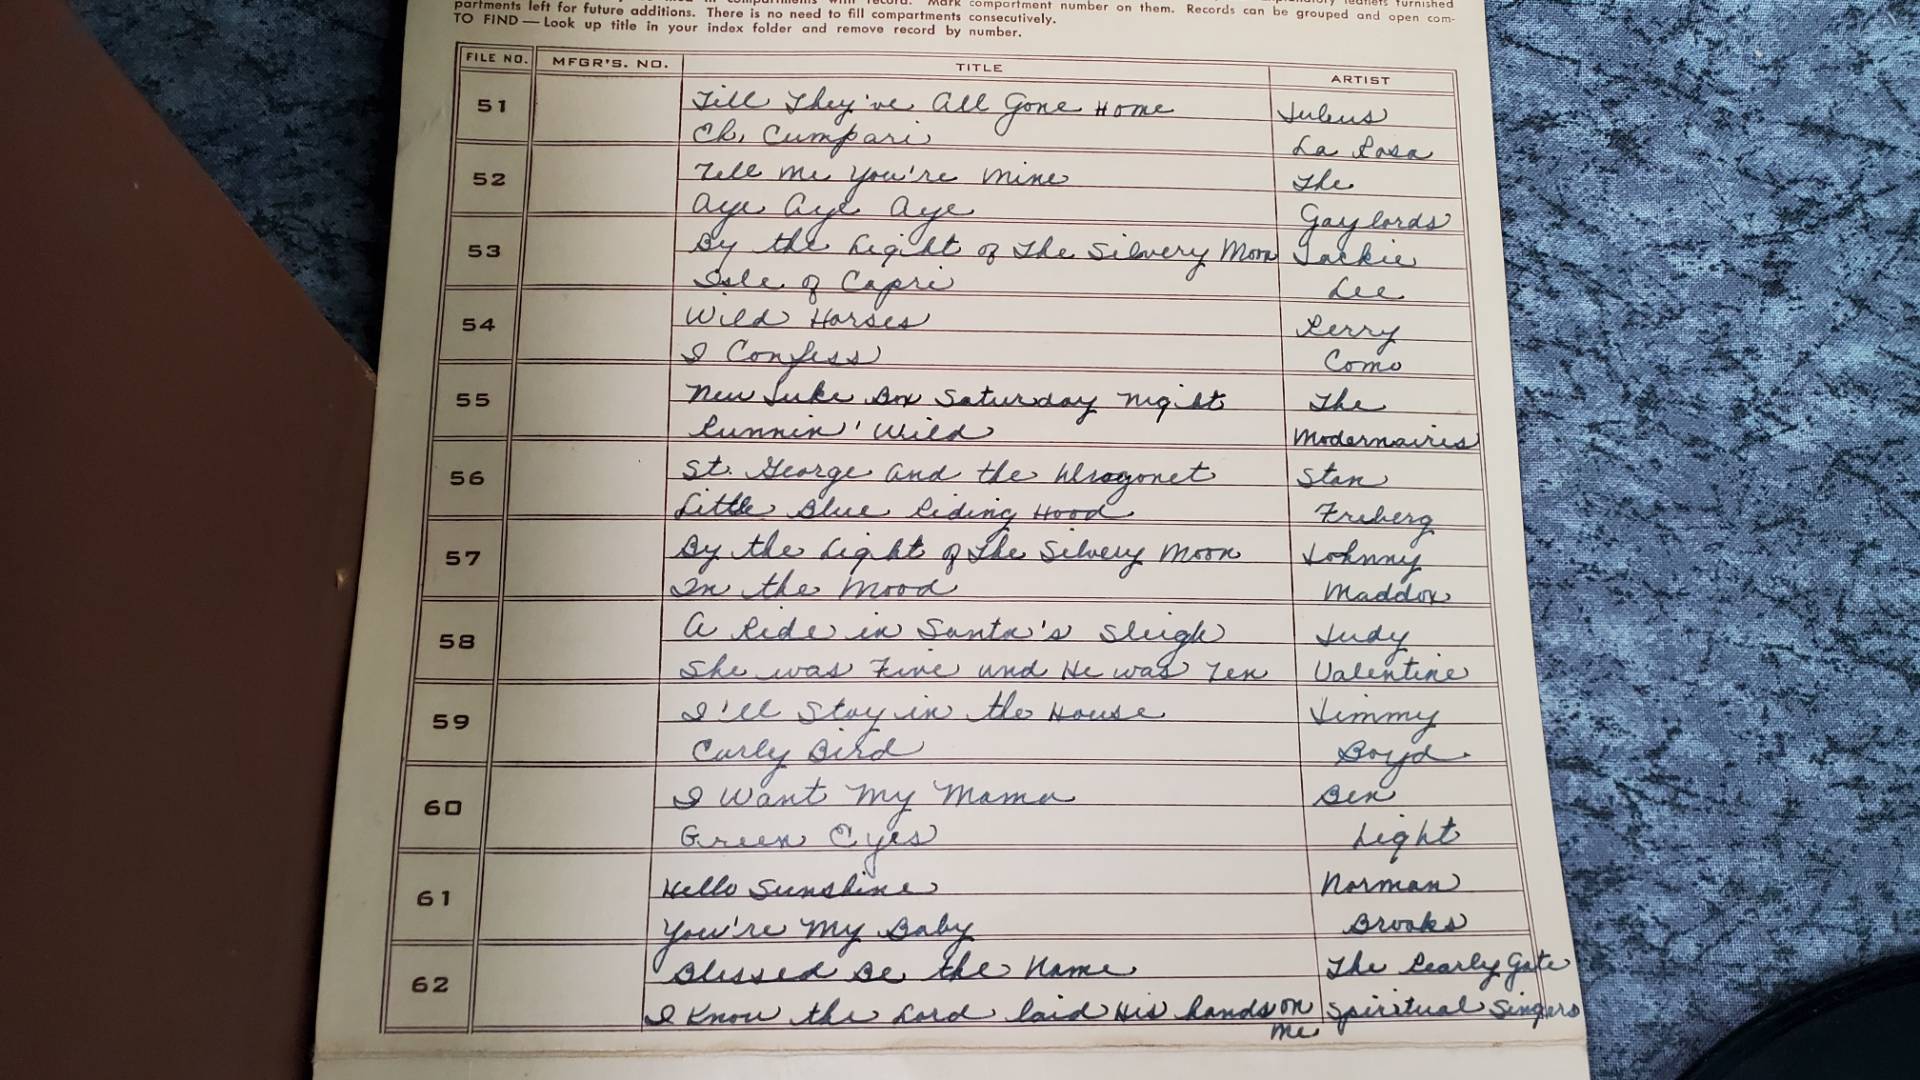 partments left for future additions. There is no need to fill compartments consecutively.
compartment number on them. Records can be grouped and open com-
TO FIND — Look up title in your index folder and remove record by number.
FILE NO. MFGR'S. NO. TITLE ARTIST
51 Till They've All Gone Home Julius
Eh, Cumpari La Rosa
52 Tell Me You're Mine The
Aye Aye Aye Gaylords
53 By the Light of The Silvery Moon Jackie
Isle of Capri Lee
54 Wild Horses Perry
I Confess Como
55 New Juke Box Saturday Night The
Runnin' Wild Modernaires
56 St. George and the Dragonet Stan
Little Blue Riding Hood Freberg
57 By the Light of The Silvery Moon Johnny
In the Mood Maddox
58 A Ride in Santa's Sleigh Judy
She was Five and He was Ten Valentine
59 I'll Stay in the House Jimmy
Early Bird Boyd.
60 I Want My Mama Ben
Green Eyes Light
61 Hello Sunshine Norman
You're My Baby Brooks
62 Blessed Be the Name The Pearly Gate
I Know the Lord laid His hands on Spiritual Singers
me